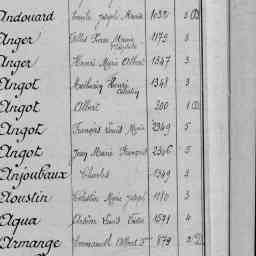 Andouard Emile Joseph Marie 1032 3
Anger Felix Pierre Marie 1179 3
Anger Henri Marie Albert 1347 3
Angot Mathurin Henri 1348 3
Angot Albert 200 1
Angot François Louis Marie 2349 5
Angot Jean Marie François 2346 5
Anjoubaux Charles 1349 3
Aoustin Marie Joseph 1180 3
Aqua Louis 1591 4
Armange Emmanuel Albert 879 2